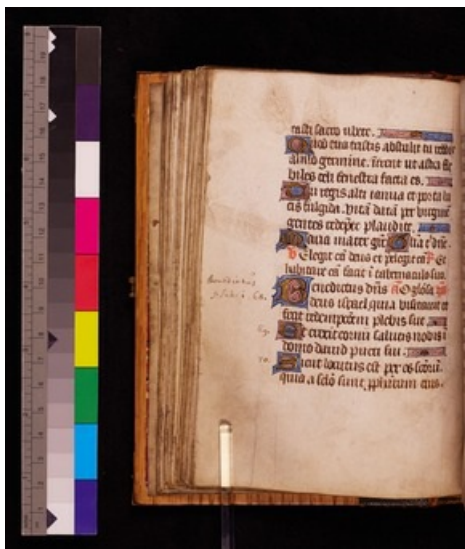 tasti sacro ubere.
Quod eua tristis abstulit tu reddis
almo germine. intrent ut astra fle
biles celi fenestra facta es.
Tu regis alti ianua et porta lu
cis fulgida. vitā datā per virginē
gentes redempte plaudite.
Maria mater grē Glia t dñe.
V Elegit eā deus et prelegit eā R Et
habitare eā facit ī tabernaculo suo.
Benedictus dñs a O gloōsa
deus israel quia visitauit et
fecit redemptōem plebis sue
Et erexit cornu salutis nobis ī
domo dauid pueri sui.
Sicut locutus est per os scōrū.
qui a sclō sunt pphetarum eius.
Benedictus